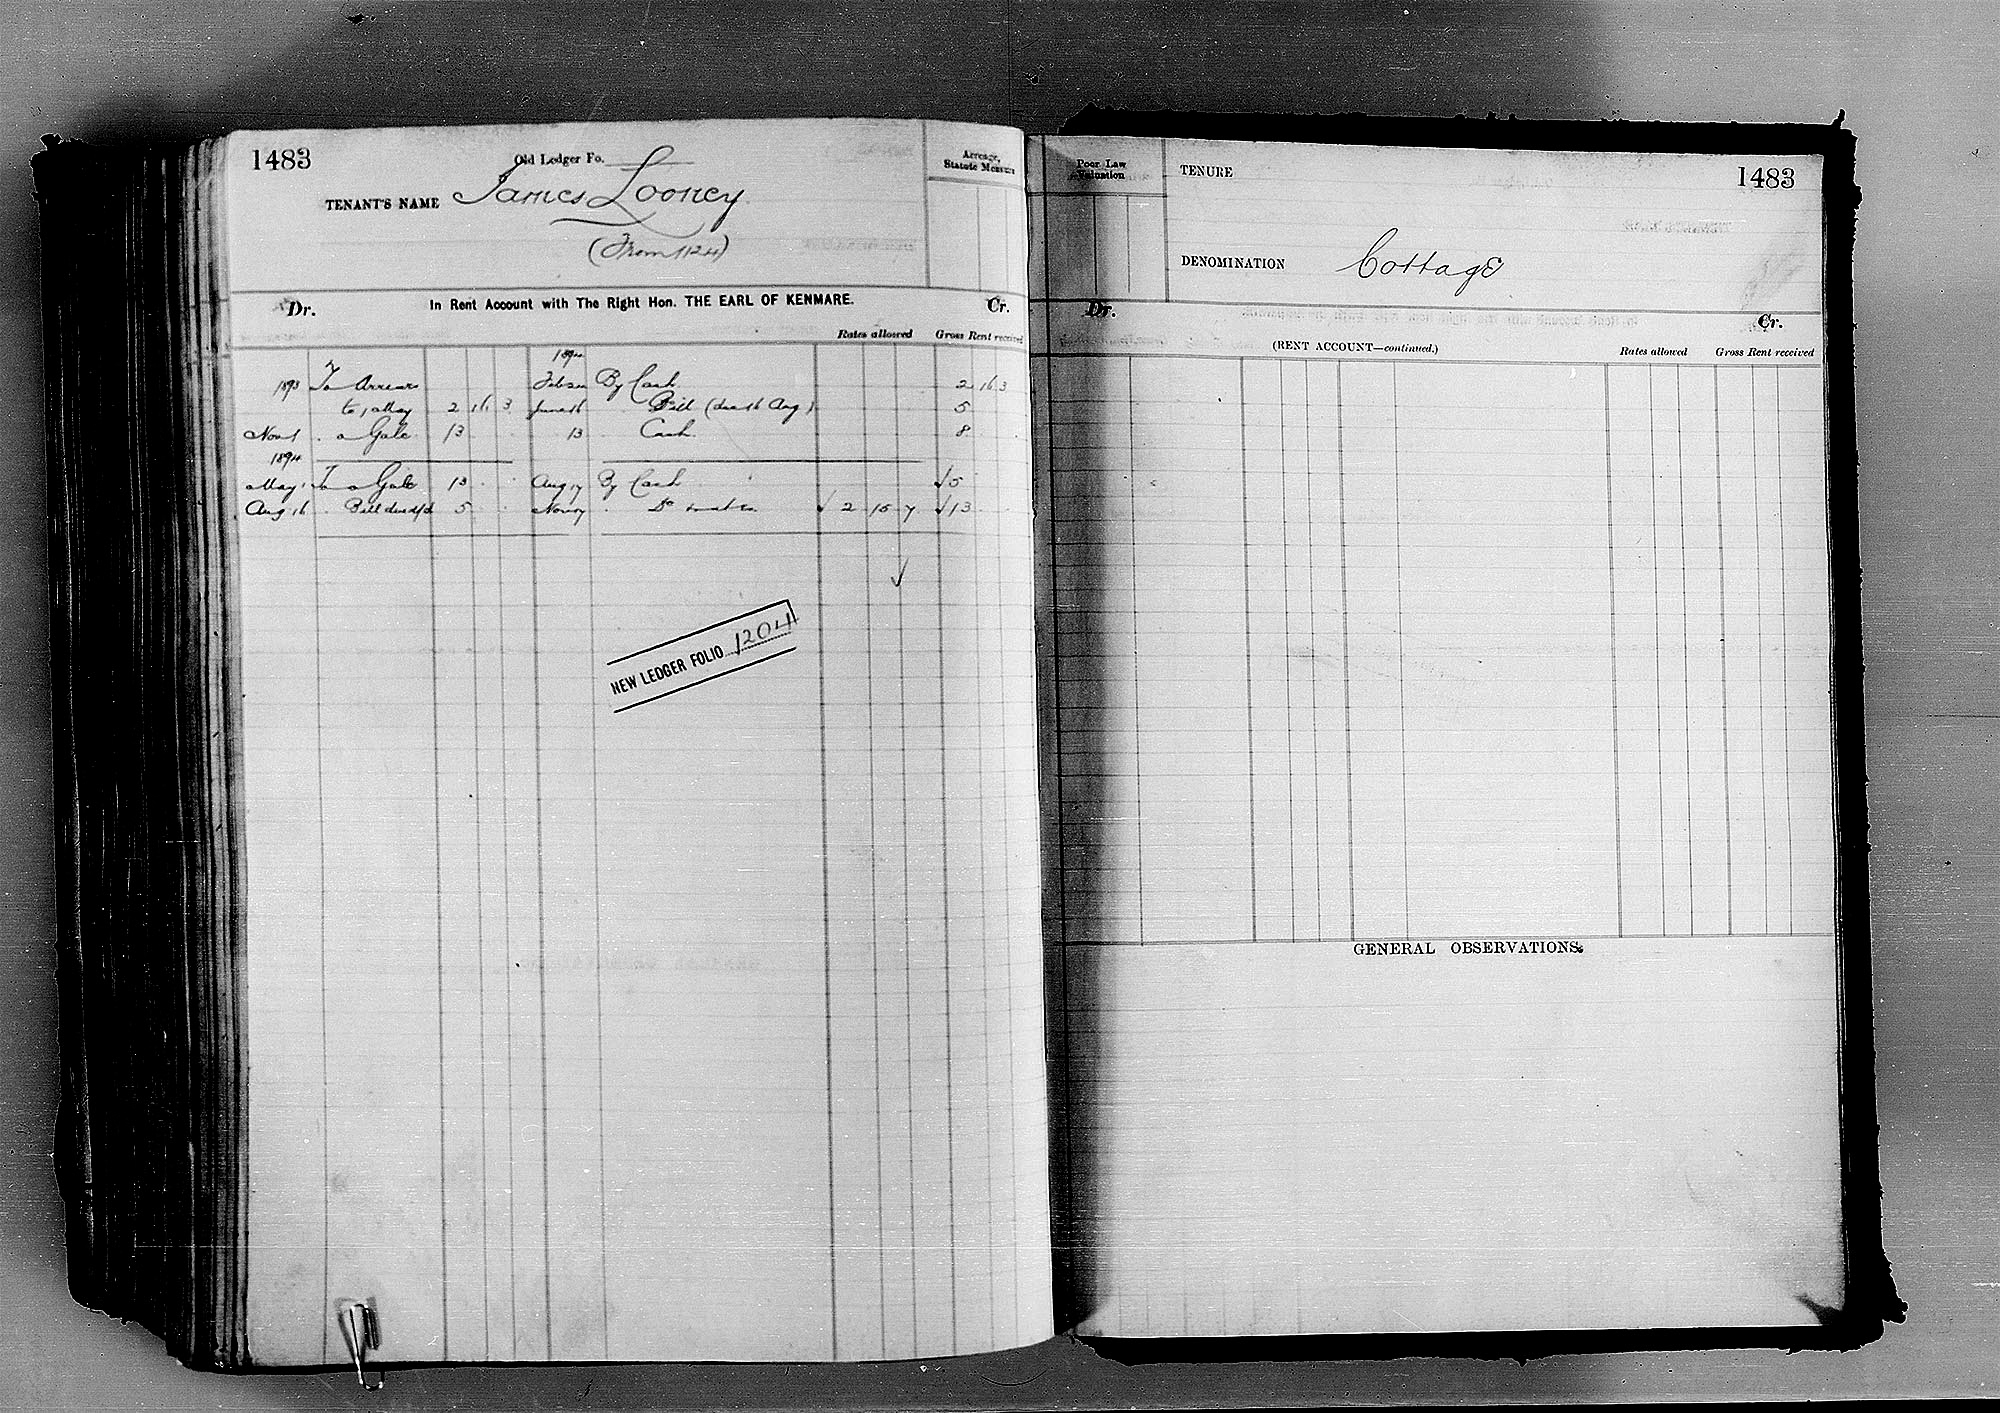 1483
Old Ledger Fo.
TENANT'S NAME James Looney
(From 1124)
Acreage, Statute Measure
Dr. In Rent Account with The Right Hon. THE EARL OF KENMARE. Cr.
Rates allowed Gross Rent received
1894
1893 To Arrears By Cash 2 16 3
to 1 May 2 16 3 June 16 Bill (due 16 Aug) 5
Nov 1 a Gale 13 13 Cash 8
1894
May 1 To a Gale 13 Aug 17 By Cash √ 5
Aug 16 Bill due 5 Do √ 2 15 7 √ 13
√
NEW LEDGER FOLIO 1204
Poor Law Valuation
TENURE
1483
DENOMINATION Cottage
Dr. Cr.
(RENT ACCOUNT—continued.) Rates allowed Gross Rent received
GENERAL OBSERVATIONS.